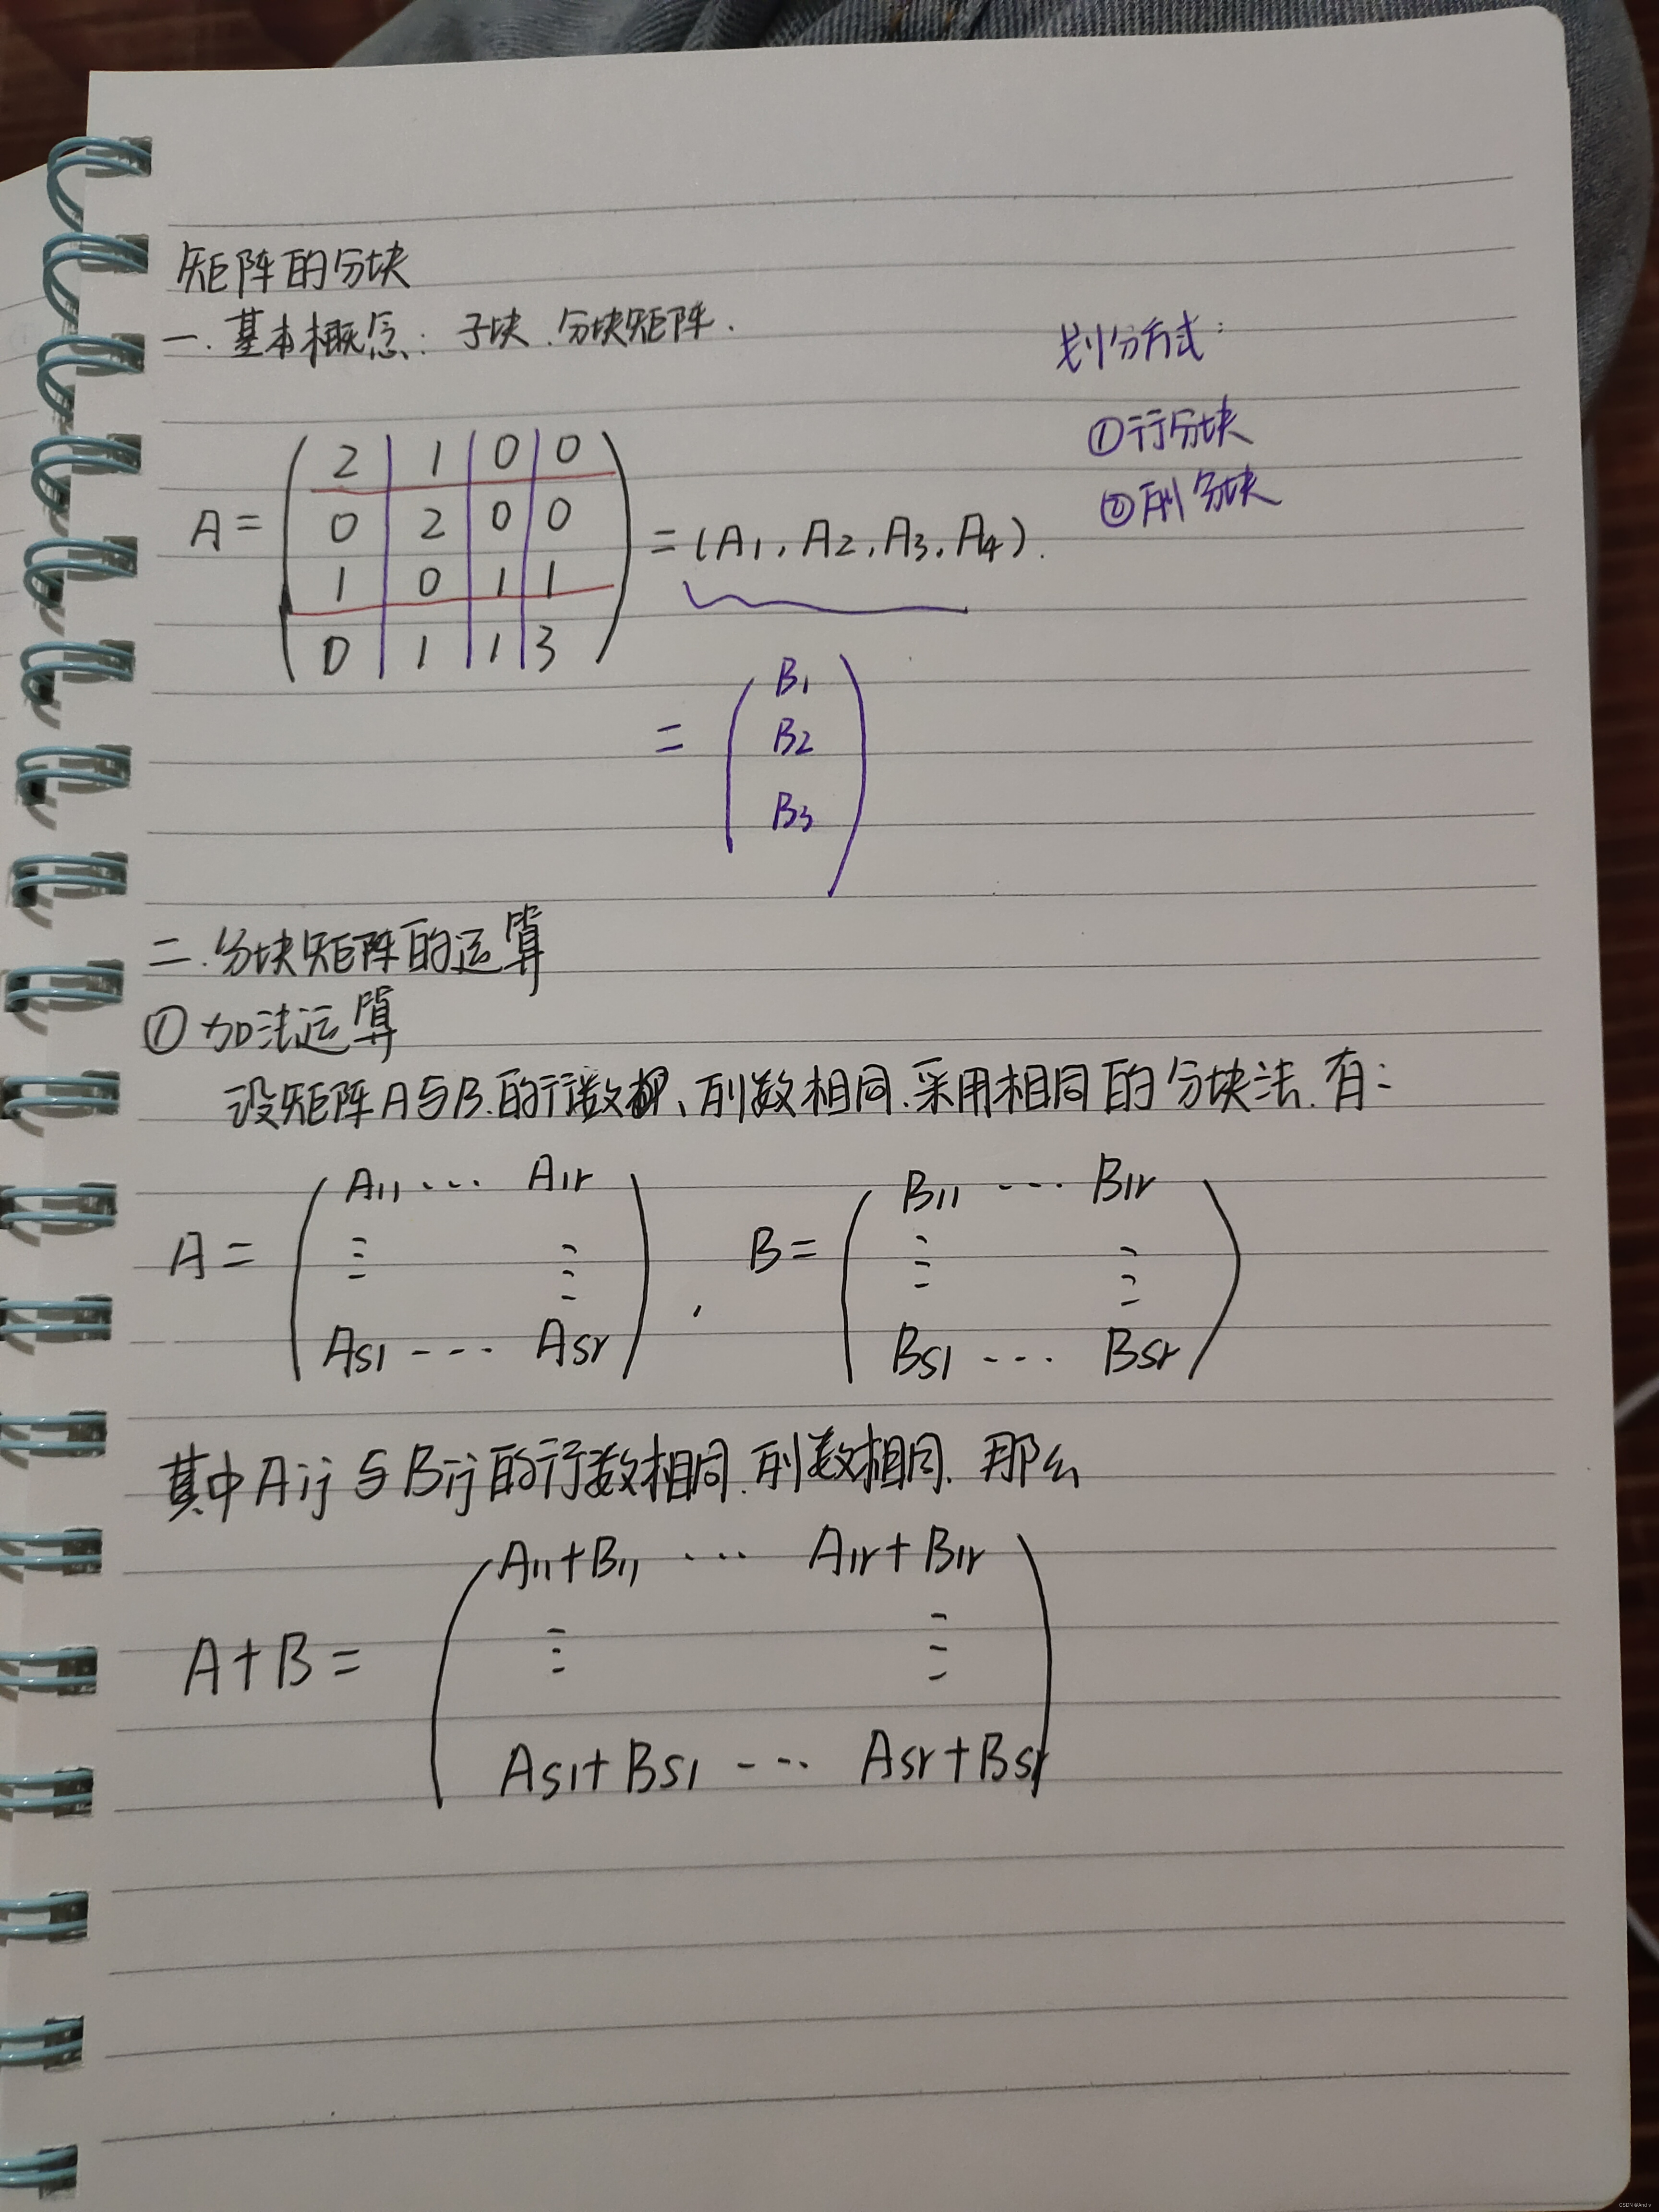 矩阵的分块
一.基本概念:子块.分块矩阵.
划分方式:
①行分块
②列分块
A = ( 2 1 0 0
0 2 0 0
1 0 1 1
0 1 1 3 ) = (A1, A2, A3, A4).
= ( B1
B2
B3 )
二.分块矩阵的运算
①加法运算
设矩阵A与B.的行数相、列数相同.采用相同的分块法.有:
A = ( A11 ... A1r
⋮ ⋮
As1 ... Asr ) , B = ( B11 ... B1r
⋮ ⋮
Bs1 ... Bsr )
其中Aij与Bij的行数相同.列数相同.那么
A+B = ( A11+B11 ... A1r+B1r
⋮ ⋮
As1+Bs1 ... Asr+Bsr )